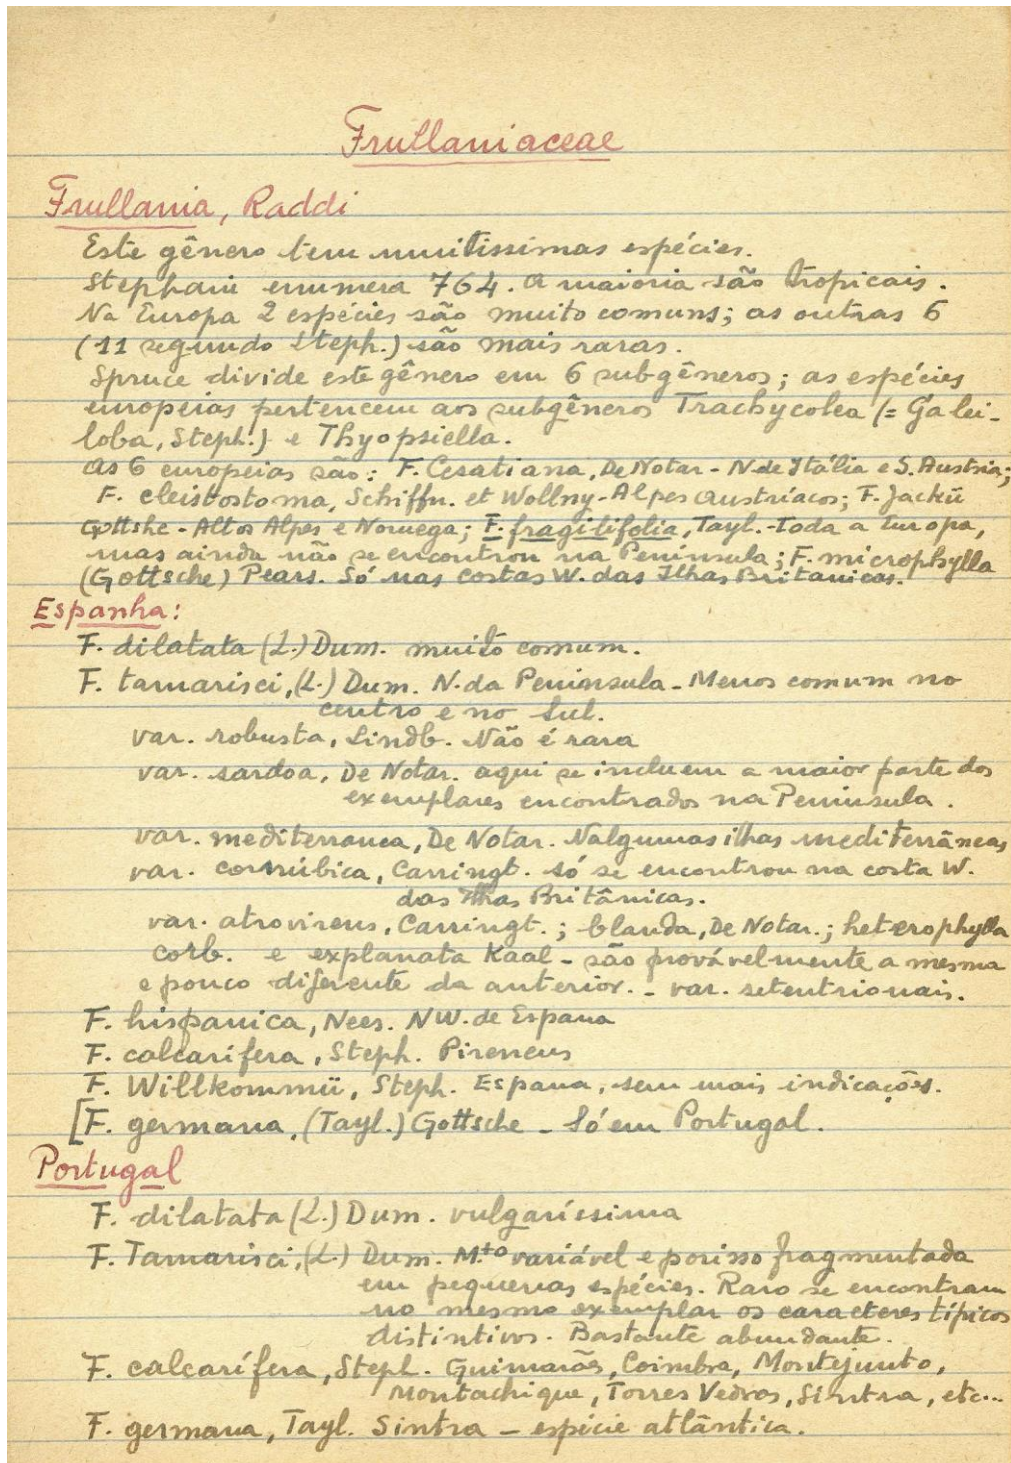 Frullaniaceae
Frullania, Raddi
Este gênero tem muitissimas espécies.
Stephani enumera 764. A maioria são tropicais.
Na Europa 2 espécies são muito comuns; as outras 6
(11 segundo Steph.) são mais raras.
Spruce divide este gênero em 6 subgêneros; as espécies
europeias pertencem aos subgêneros Trachycolea (= Galei-
loba, Steph.) e Thyopsiella.
As 6 europeias são: F. Cesatiana, De Notar - N. de Itália e S. Austria;
F. cleistostoma, Schiffn. et Wollny - Alpes austríacos; F. Jackii
Gottshe - Altos Alpes e Noruega; F. fragilifolia, Tayl. - Toda a Europa,
mas ainda não se encontrou na Península; F. microphylla
(Gottsche) Pears. Só nas costas W. das Ilhas Britanicas.
Espanha:
F. dilatata (L.) Dum. muito comum.
F. tamarisci, (L.) Dum. N. da Peninsula - Menos comum no
centro e no Sul.
var. robusta, Lindb. Não é rara
var. sardoa, De Notar. aqui se incluem a maior parte dos
exemplares encontrados na Peninsula.
var. mediterranea, De Notar. Nalgumas ilhas mediterrâneas
var. cornúbica, Carringt. só se encontrou na costa W.
das Ilhas Britânicas.
var. atrovirens, Carringt.; blanda, De Notar.; heterophylla
corb. e explanata Kaal - são provávelmente a mesma
e pouco diferente da anterior. - var. setentrionais.
F. hispanica, Nees. NW. de Espana
F. calcarifera, Steph. Pireneus
F. Willkommii, Steph. Espana, sem mais indicações.
[F. germana, (Tayl.) Gottsche - Só em Portugal.
Portugal
F. dilatata (L.) Dum. vulgaríssima
F. Tamarisci, (L.) Dum. M.to variável e porisso fragmentada
em pequenas espécies. Raro se encontram
no mesmo exemplar os caracteres típicos
distintivos. Bastante abundante.
F. calcarífera, Steph. Guimarães, Coimbra, Montejunto,
Montachique, Torres Vedras, Sintra, etc...
F. germana, Tayl. Sintra - espécie atlântica.